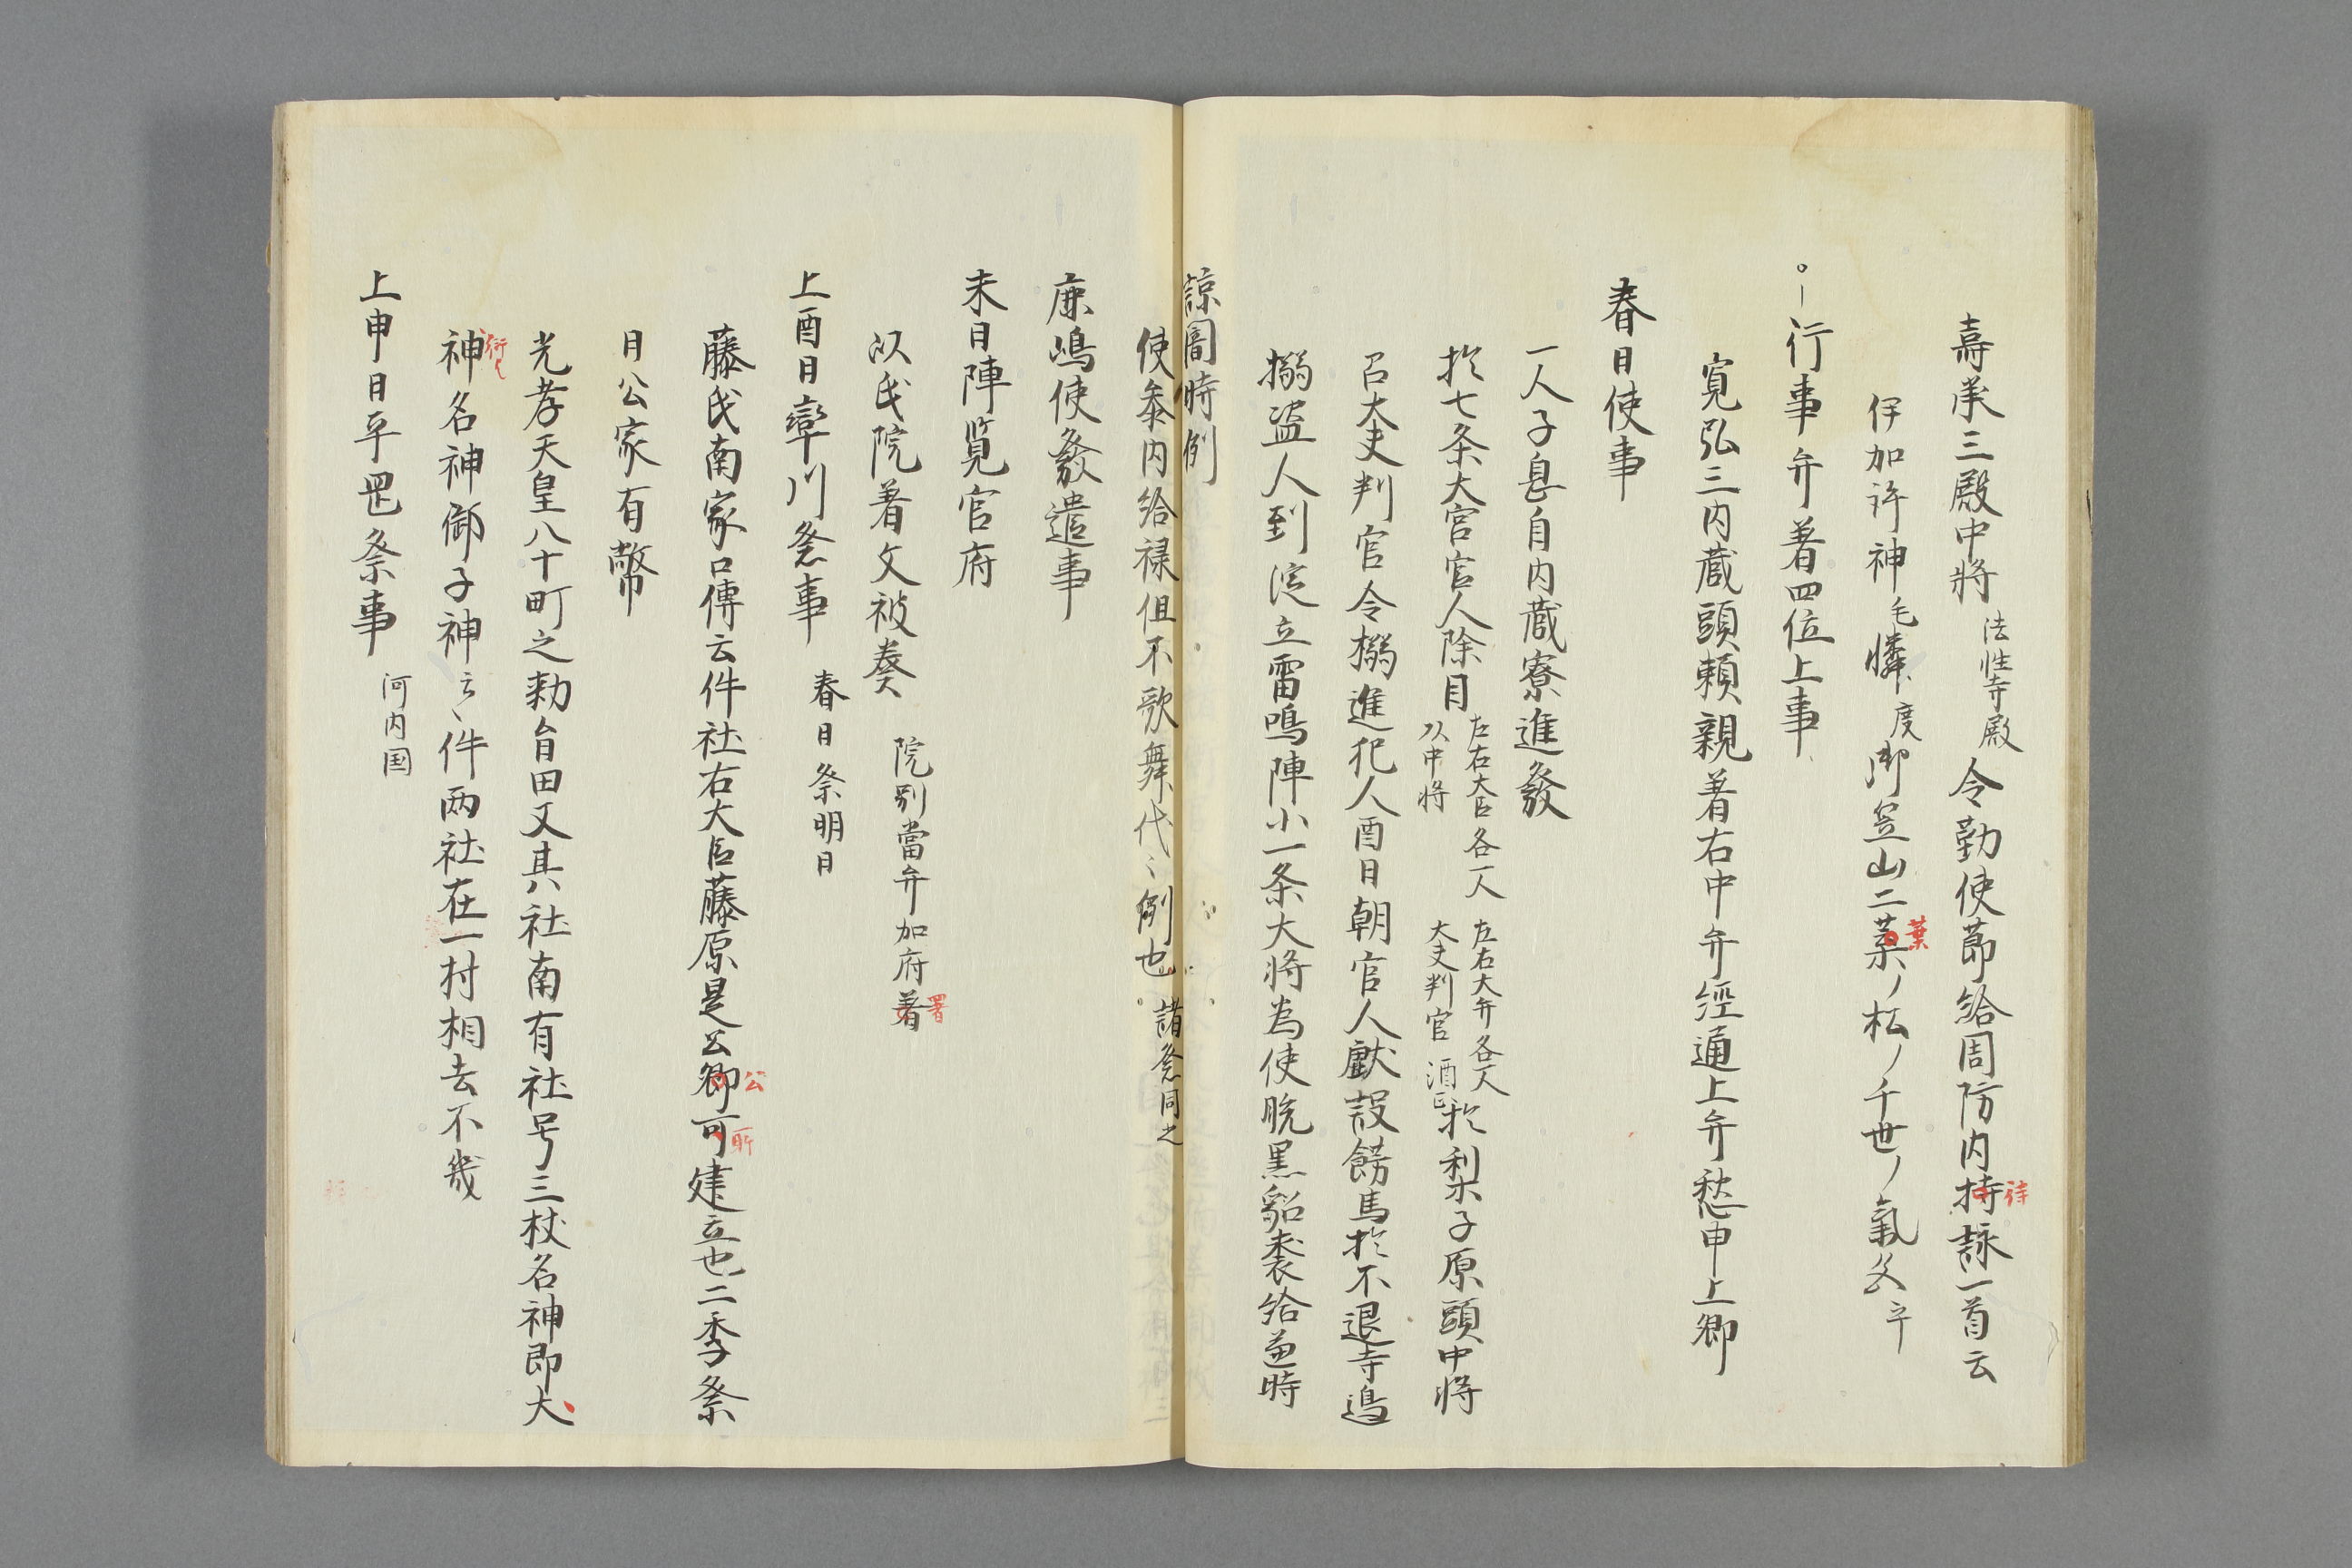 壽永三殿中将法性寺殿令勤使莭給周防内持待詠一首云
伊加許神毛憐度御笠山二葉葉ノ松ノ千世ノ氣
行事弁着四位上事
寛弘三内蔵頭頼親着右中弁經通上弁愁申上卿
春日使事
一人子息自内蔵寮進發
於七条大宮官人除目左右大臣各一人以中将左右大弁各一人大夫判官酒正於梨子原頭中将
召大夫判官令搦進犯人酉日朝官人獻設餝馬於不退寺邊
搦盗人到淀立雷鳴陣小一条大将為使脱黒貂裘給兼時
諒闇時例
使参内給禄但不歌舞代〻例也諸祭同之
鹿嶋使發遣事
未日陣覧官府
以氏院着文被奏院別當弁加府着署
上酉日率川祭事春日祭明日
藤氏南家口傳云件社右大臣藤原是公卿公可所建立也二季祭
月公家有幣
光孝天皇八十町之勅旨田又其社南有社号三枝名神即大
神衍名神御子神云〻件两社在一村相去不幾
上申日平罡祭事河内国